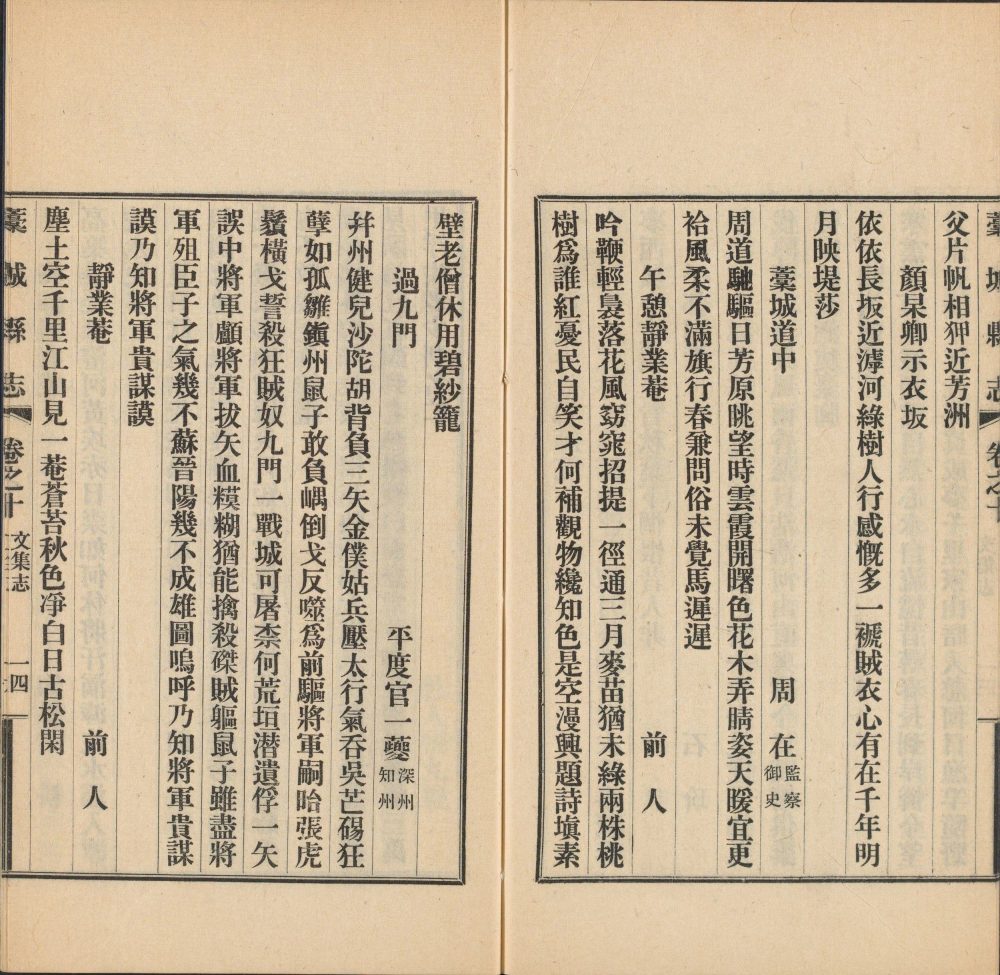 藁城縣志 卷之十
父片帆相狎近芳洲
顏杲卿示衣坂
依依長坂近滹河綠樹人行感慨多一褫賊衣心有在千年明
月映堤莎
藁城道中 周 在 監察御史
周道馳驅日芳原眺望時雲霞開曙色花木弄睛姿天暖宜更
袷風柔不滿旗行春兼問俗未覺馬遲遲
午憩靜業菴 前 人
吟鞭輕裊落花風窈窕招提一徑通三月麥苗猶未綠兩株桃
樹爲誰紅憂民自笑才何補觀物纔知色是空漫興題詩塡素
壁老僧休用碧紗籠
過九門 平度官一夔 深州知州
幷州健兒沙陀胡背負三矢金僕姑兵壓太行氣吞吳芒碭狂
孽如孤雛鎭州鼠子敢負嵎倒戈反噬爲前驅將軍嗣哈張虎
鬚橫戈誓殺狂賊奴九門一戰城可屠柰何荒垣潜遺俘一矢
誤中將軍顱將軍拔矢血糢糊猶能擒殺磔賊軀鼠子雖盡將
軍殂臣子之氣幾不蘇晉陽幾不成雄圖嗚呼乃知將軍貴謀
謨乃知將軍貴謀謨
靜業菴 前 人
塵土空千里江山見一菴蒼苔秋色凈白日古松閑
藁城縣志 卷之十 文集志 一四